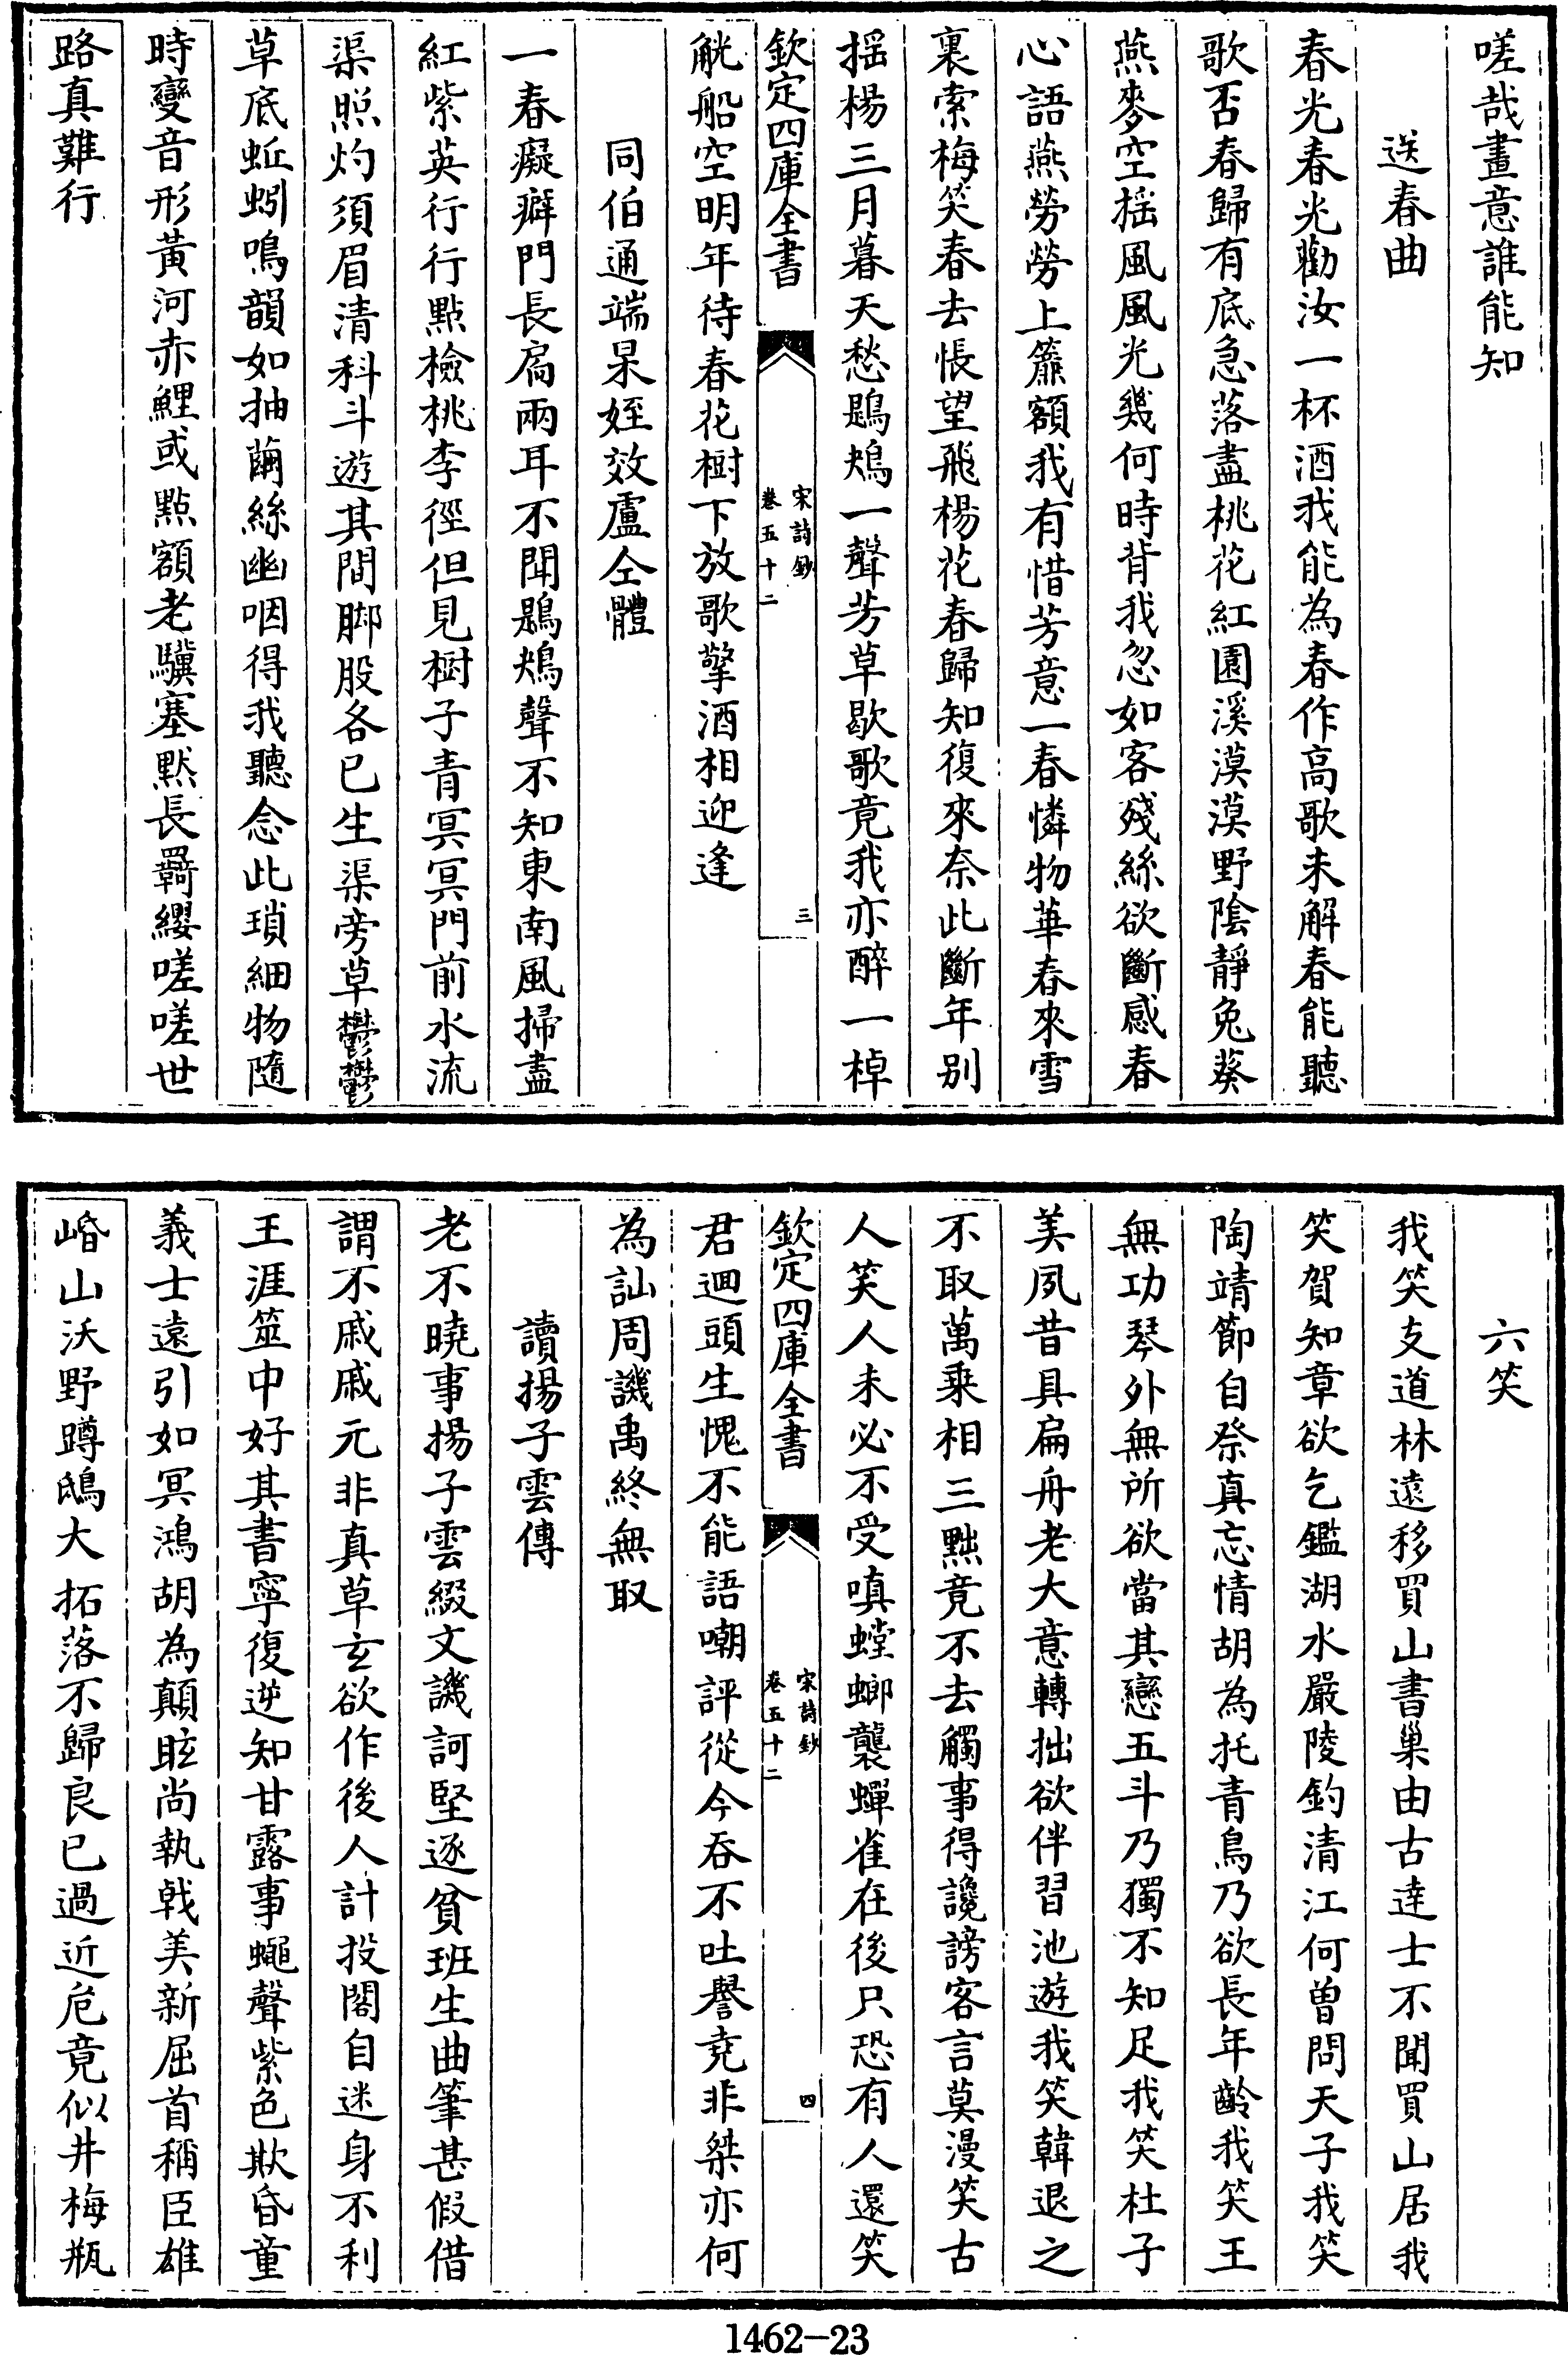 嗟哉畫意誰能知
送春曲
春光春光勸汝一杯酒我能為春作高歌未解春能聽
歌否春歸有底急落盡桃花紅園溪漠漠野陰靜兔葵
燕麥空揺風風光幾何時背我忽如客殘絲欲斷感春
心語燕勞勞上簾額我有惜芳意一春憐物華春來雪
裏索梅笑春去悵望飛楊花春歸知復來奈此斷年别
揺楊三月暮天愁鶗鴂一聲芳草歇歌竟我亦醉一棹
欽定四庫全書
宋詩鈔
卷五十二
三
觥船空明年待春花樹下放歌擎酒相迎逢
同伯通端杲姪效盧仝體
一春癡癖門長扃兩耳不聞鶗鴂聲不知東南風掃盡
紅紫英行行點檢桃李徑但見樹子青冥冥門前水流
渠照灼須眉清科斗遊其間脚股各已生渠旁草鬱鬱
草底蚯蚓鳴韻如抽繭絲幽咽得我聽念此瑣細物隨
時變音形黃河赤鯉或點額老驥塞默長羇纓嗟嗟世
路真難行
六笑
我笑支道林遠移買山書巢由古逹士不聞買山居我
笑賀知章欲乞鑑湖水嚴陵釣清江何曾問天子我笑
陶靖節自祭真忘情胡為托青鳥乃欲長年齡我笑王
無功琴外無所欲當其戀五斗乃獨不知足我笑杜子
美夙昔具扁舟老大意轉拙欲伴習池遊我笑韓退之
不取萬乗相三黜竟不去觸事得讒謗客言莫漫笑古
人笑人未必不受嗔螳螂襲蟬雀在後只恐有人還笑
欽定四庫全書
宋詩鈔
卷五十二
四
君迴頭生愧不能語嘲評從今吞不吐譽堯非桀亦何
為訕周譏禹終無取
讀揚子雲傳
老不曉事揚子雲綴文譏訶堅逐貧班生曲筆甚假借
謂不戚戚元非真草玄欲作後人計投閣自迷身不利
王涯筮中好其書寧復逆知甘露事蠅聲紫色欺昏童
義士遠引如冥鴻胡為顛眩尚執戟美新屈首稱臣雄
崏山沃野蹲鴟大拓落不歸良已過近危竟似井梅瓶